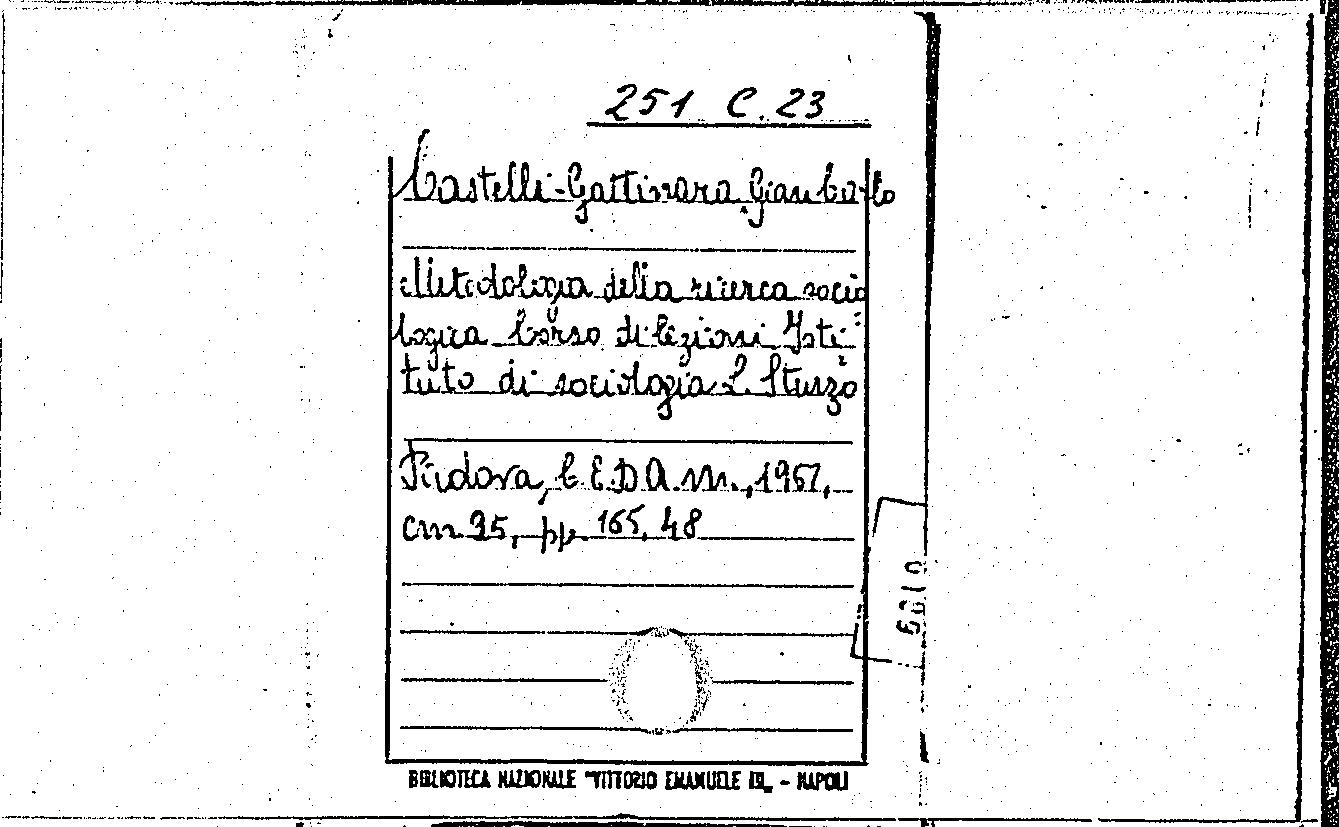 251 C. 23
Castelli-Gattinara, Gian Carlo
Metodologia della ricerca socio
logica Corso di lezioni Isti=
tuto di sociologia L. Sturzo
Padova, C.E.D.A.M.,
cm 25, pp. 165, 48
BIBLIOTECA NAZIONALE "VITTORIO EMANUELE III„ - NAPOLI